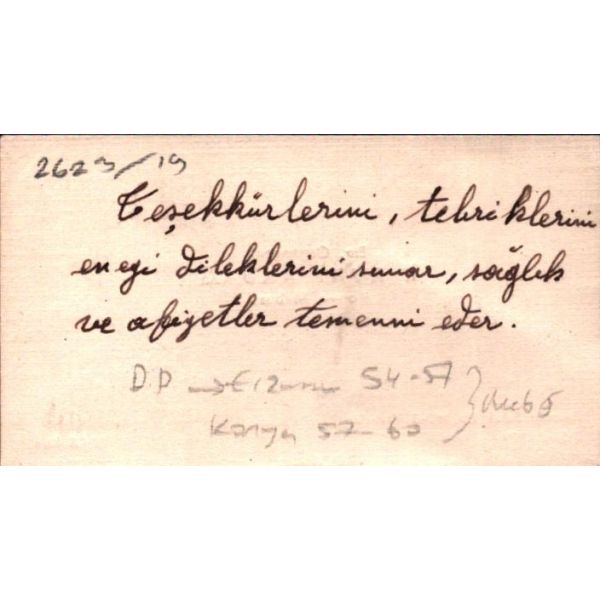 2623/19
Teşekkürlerini, tebriklerini
en eyi dileklerini sunar, sağlık
ve afiyetler temenni eder.
D.P → Erzurum 54-57
Konya 57-60